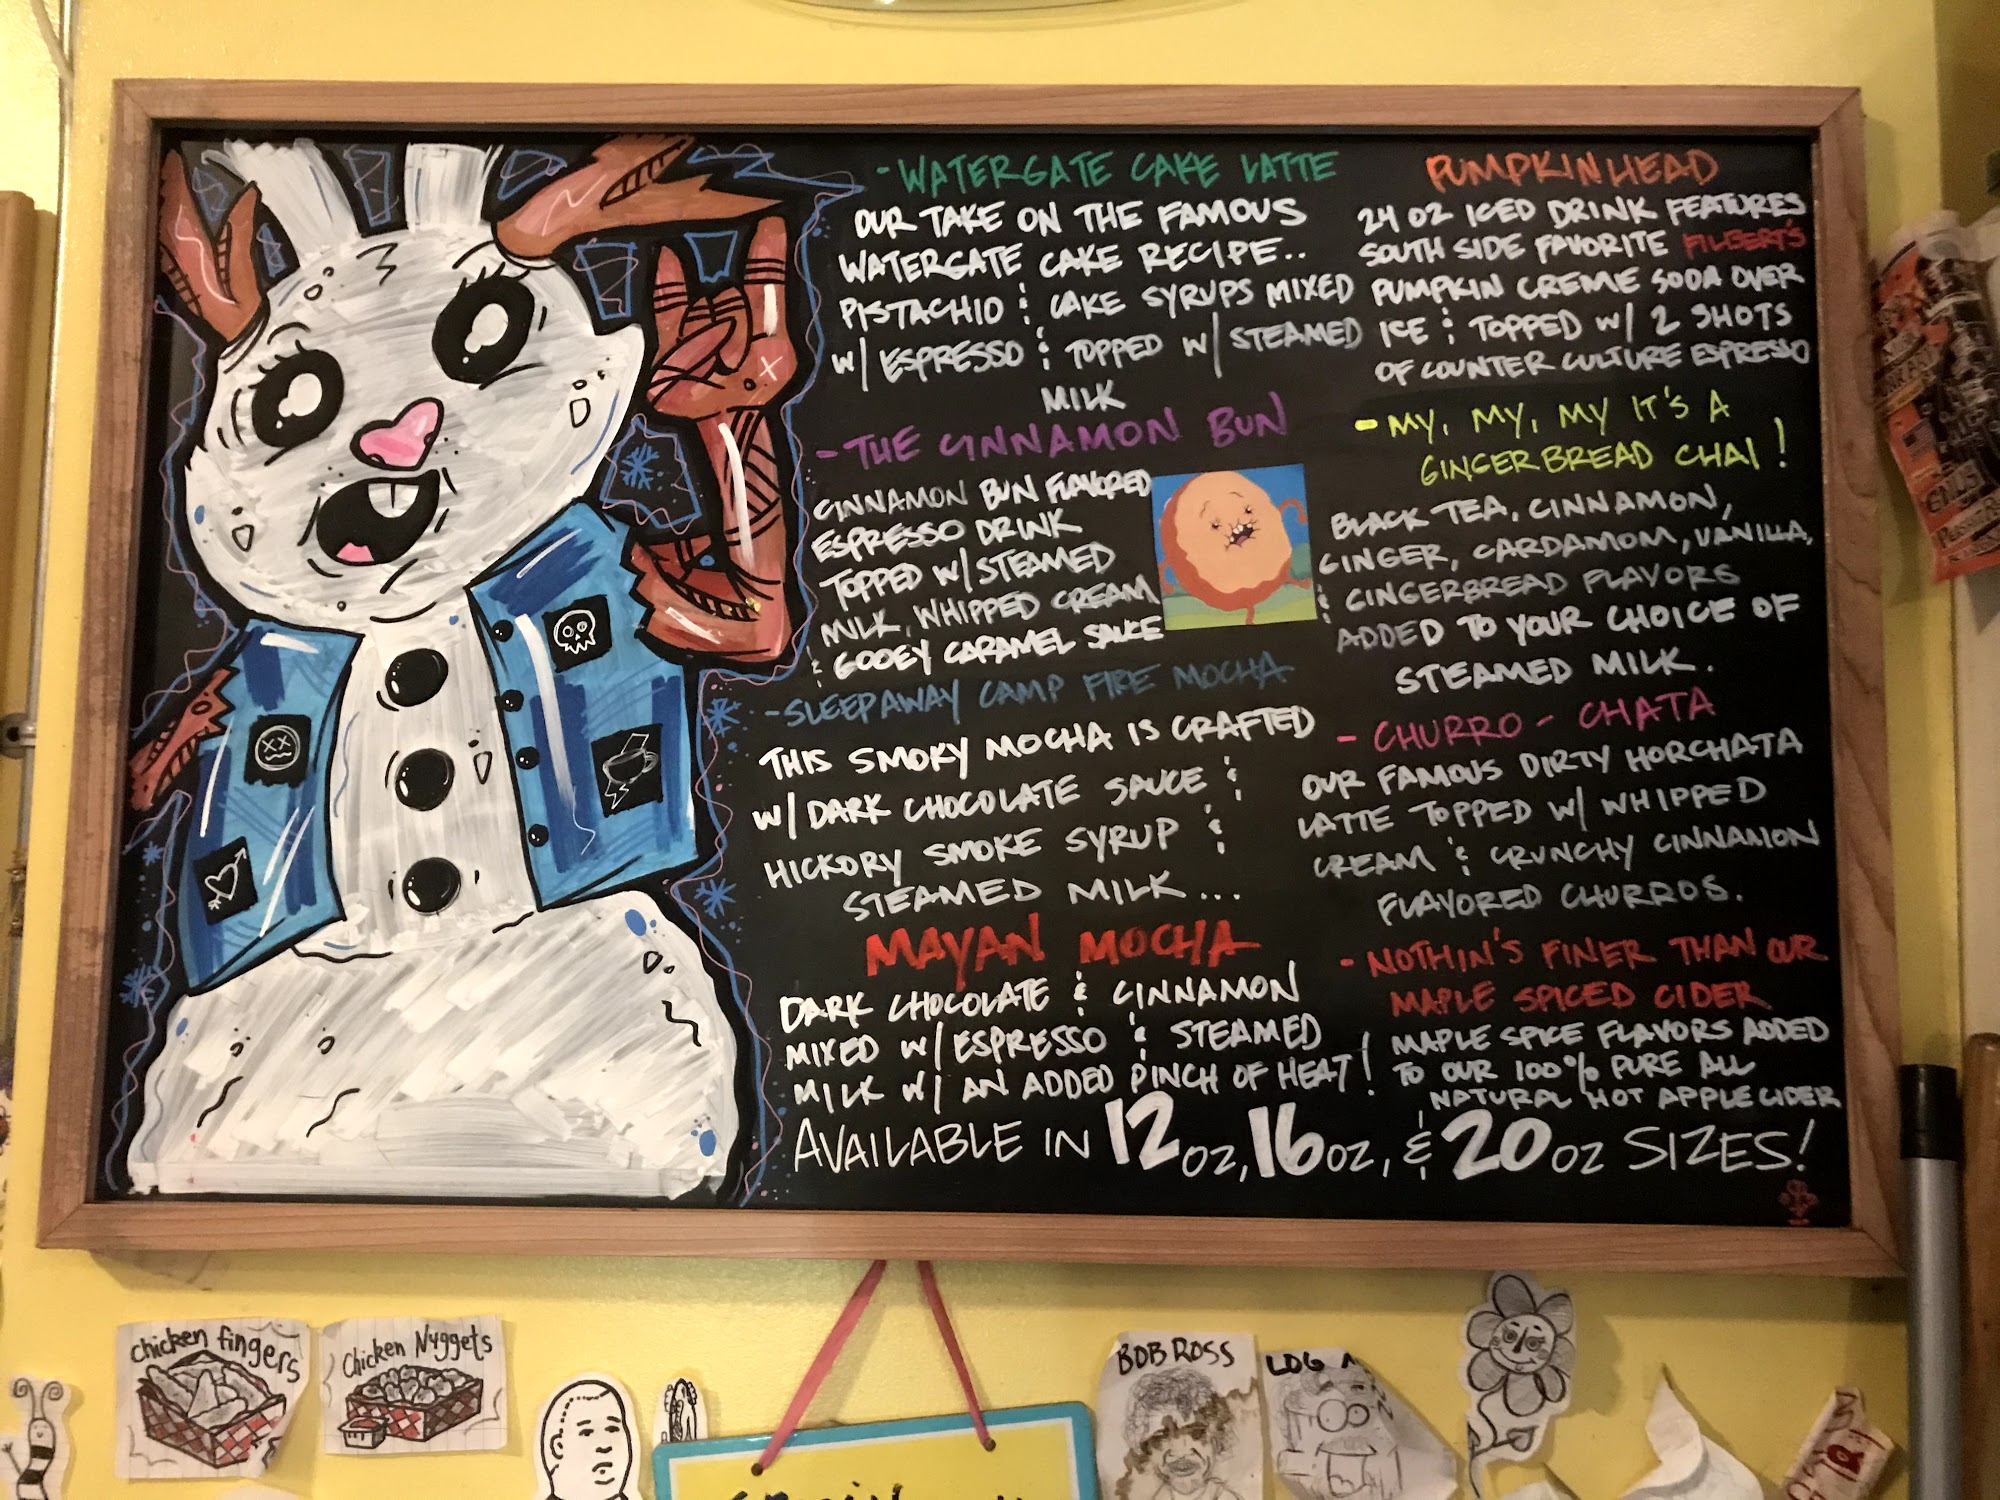 -WATERGATE CAKE LATTE
OUR TAKE ON THE FAMOUS
WATERGATE CAKE RECIPE..
PISTACHIO & CAKE SYRUPS MIXED
W/ ESPRESSO & TOPPED W/ STEAMED
MILK
-THE CINNAMON BUN
CINNAMON BUN FLAVORED
ESPRESSO DRINK
TOPPED W/ STEAMED
MILK, WHIPPED CREAM
& GOOEY CARAMEL SAUCE
-SLEEPAWAY CAMP FIRE MOCHA
THIS SMOKY MOCHA IS CRAFTED
W/ DARK CHOCOLATE SAUCE &
HICKORY SMOKE SYRUP &
STEAMED MILK...
MAYAN MOCHA
DARK CHOCOLATE & CINNAMON
MIXED W/ ESPRESSO & STEAMED
MILK W/ AN ADDED PINCH OF HEAT!
PUMPKINHEAD
24 OZ ICED DRINK FEATURES
SOUTH SIDE FAVORITE FILBERT'S
PUMPKIN CREME SODA OVER
ICE & TOPPED W/ 2 SHOTS
OF COUNTER CULTURE ESPRESSO
-MY, MY, MY IT'S A
GINGERBREAD CHAI!
BLACK TEA, CINNAMON,
GINGER, CARDAMOM, VANILLA,
& GINGERBREAD FLAVORS
ADDED TO YOUR CHOICE OF
STEAMED MILK.
- CHURRO - CHATA
OUR FAMOUS DIRTY HORCHATA
LATTE TOPPED W/ WHIPPED
CREAM & CRUNCHY CINNAMON
FLAVORED CHURROS.
- NOTHIN'S FINER THAN OUR
MAPLE SPICED CIDER
MAPLE SPICE FLAVORS ADDED
TO OUR 100% PURE ALL
NATURAL HOT APPLE CIDER
AVAILABLE IN 12 OZ, 16 OZ, & 20 OZ SIZES!
chicken fingers
Chicken Nuggets
BOB ROSS